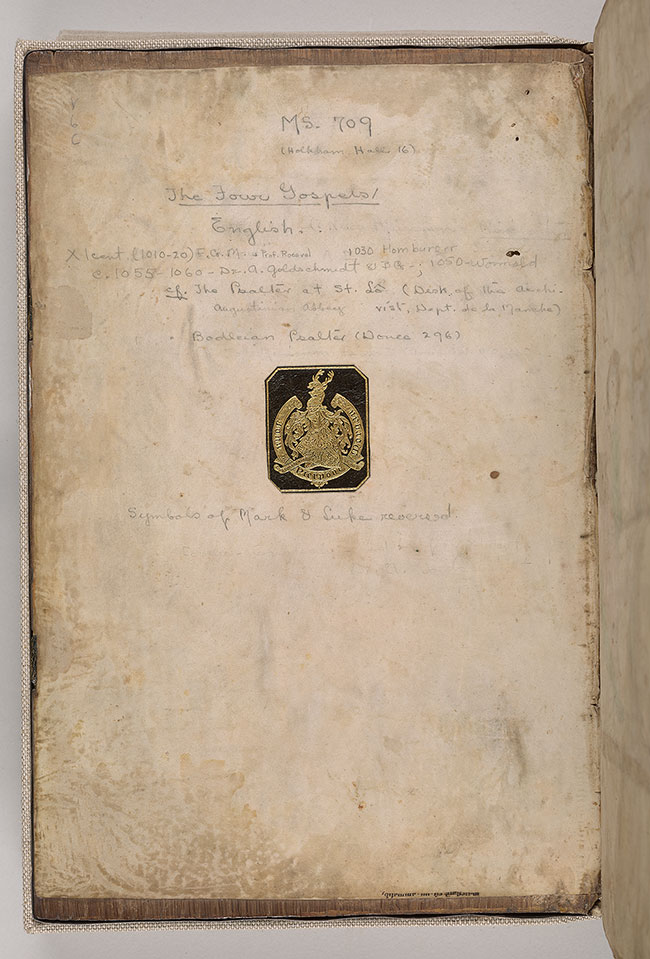 MS. 709
(Holkham Hall 16)
The Four Gospels/
English.
XI cent. (1010-20) E.G.M. & Prof. 1030 Homburger
c. 1055-1060 - Dr. A. Goldschmidt & 1050-Wormald
cf. The Psalter at St. Lô. (Disk of the Archi-
Augustinian Abbey vist, Dept. de la Manche)
Bodleian Psalter (Douce 296)
Symbols of Mark & Luke reversed.